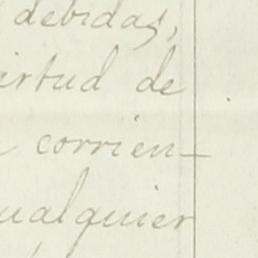 debidas,
irtud de
corrien-
ualquier